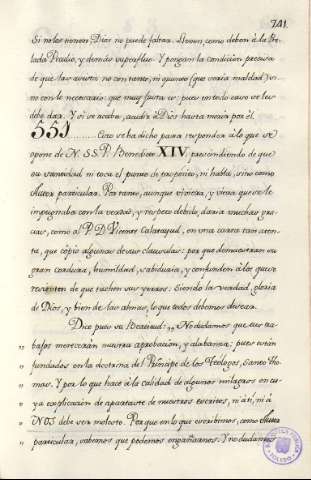 741.
Si no les tienen, Dios no puede faltar. Lleven como deben á la Po-
bada Prudio, y demás superfluo. Y pongan la condicion precisa
de que las asistan no con tanto, ni opimeo (que sería maldad) si-
ni con lo necesario: que muy justo es; pues en todo caso se les
debe dar. Y si se acaba, acudir á Dios hasta morir por él.
551........ Esto se ha dicho para responder á lo que se
opone de N. SS. P. Benedicto XIV prescindiendo de que
su santidad ni toca el punto de proposito, ni habla, sino como
Autor particular. Por tanto, aunque viviera, y viera que se le
impugnaba con la verdad, y respeto debido, daria muchas gra-
cias, como al P. D. Vicente Calatayud, en una carta tan aten-
ta, que cópio algunas de sus clausulas: por que demuestran su
gran cordura, humildad, sabiduría, y confunden á los que se
resisten de que tachen sus yerros. Siendo la verdad, gloria
de Dios, y bien de las almas, lo que todos debemos desear.
Dice pues su Beatitud: ,, No dudamos que sus tra-
,, bajos merecerán nuestra aprobacion, y alabanza; pues están
,, fundados en la doctrina del Príncipe de los Teologos, Santo Tho-
,, mas. Y por lo que hace á la calidad de algunos milagros en cu-
,, ya explicacion de apartaste de nuestros escritos, ni á ti, ni á
,, NOS debe ser molesto. Por que en lo que escribimos, como Autor
,, particular, sabemos que podemos engañarnos. Y no dudamos